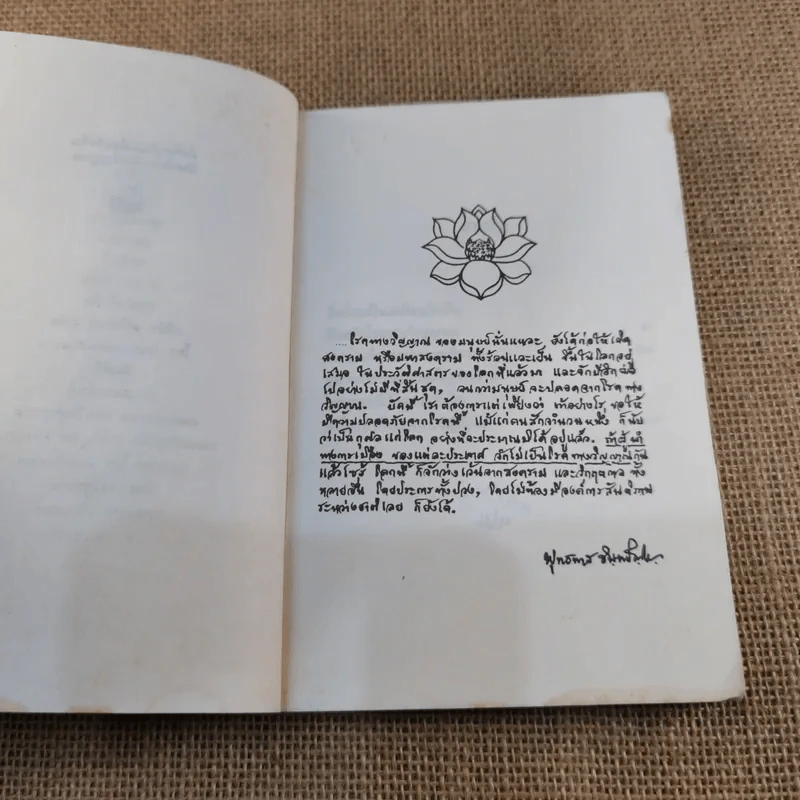 ....โรคทางวิญญาณ ของมนุษย์นั่นแหละ ยังได้ก่อให้เกิด
สงคราม หรือมหาสงคราม ทั้งร้อนและเย็น ขึ้นในโลกอยู่
เสมอ ในประวัติศาสตร์ของโลกที่แล้วมา และจักมีอีกต่อ
ไปอย่างไม่มีที่สิ้นสุด, จนกว่ามนุษย์จะปลอดจากโรคทาง
วิญญาณ. บัดนี้ เราต้องการแต่เพียงว่า ทำอย่างไร ขอให้
มีความปลอดภัยจากโรคนี้ แม้แก่คนสักจำนวนหนึ่ง ก็นับ
ว่าเป็นกุศลแก่โลก อย่างที่จะประมาณมิได้อยู่แล้ว. ถ้าผู้นำ
ทางการเมือง ของแต่ละประเทศ จักไม่เป็นโรคทางวิญญาณกัน
แล้วไซร้ โลกนี้ ก็จักว่างเว้นจากสงคราม และวิกฤตกาล ทั้ง
หลายอื่น โดยประการทั้งปวง, โดยไม่ต้องมีองค์การสันติภาพ
ระหว่างชาติเลย ก็ยังได้.
พุทธทาส อินทปัญโญ